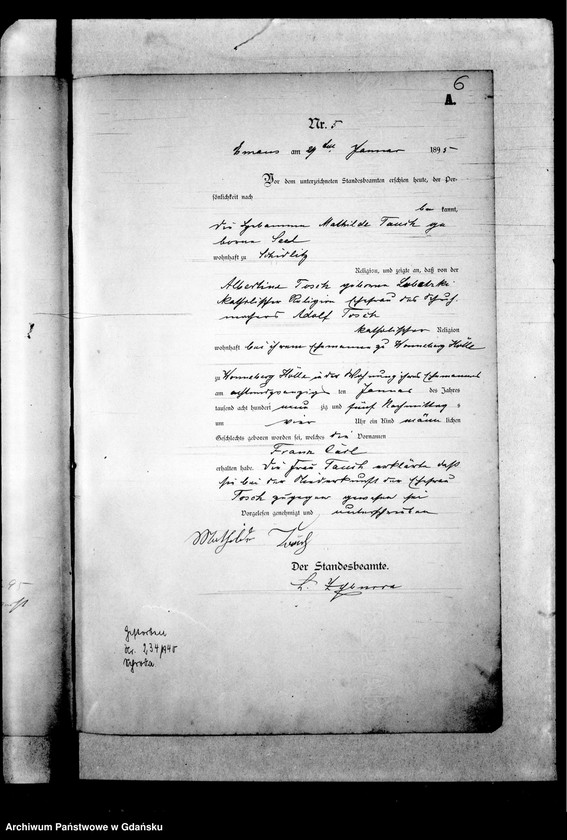 6
A.
Nr. 5
Emaus am 29ten Januar 1895
Vor dem unterzeichneten Standesbeamten erschien heute, der Per-
sönlichkeit nach
be kannt,
die Hebamme Mathilde Tausch ge
borene Seel
wohnhaft zu Schidlitz
Religion, und zeigte an, daß von der
Albertine Tosch geborene
katholischer Religion Ehefrau des Schuh
machers Adolf Tosch
katholischer Religion
wohnhaft bei ihrem Ehemanne zu Wonneberg Hölle
zu Wonneberg Hölle in der Wohnung ihres Ehemannes
am achtundzwanzigsten Januar des Jahres
tausend acht hundert neun zig und fünf Nachmittag s
um vier Uhr ein Kind männ lichen
Geschlechts geboren worden sei, welches die Vornamen
Franz Carl
erhalten habe. Die Frau Tausch erklärte daß
sie bei der Niederkunft der Ehefrau
Tosch zugegen gewesen sei
Vorgelesen genehmigt und unterschrieben
Mathilde Tausch
Der Standesbeamte.
Gestorben
Nr. 234/1940
Archiwum Państwowe w Gdańsku